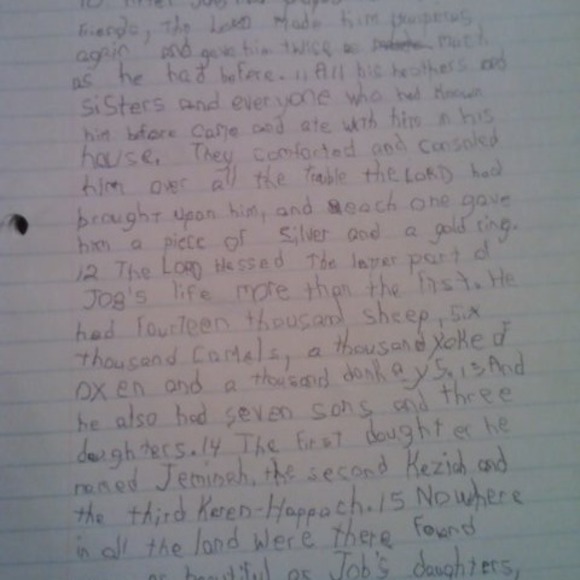 friends, the LORD made him prosperous
again and gave him twice as much
as he had before. 11 All his brothers and
sisters and everyone who had known
him before came and ate with him in his
house. They comforted and consoled
him over all the trouble the LORD had
brought upon him, and each one gave
him a piece of silver and a gold ring.
12 The LORD blessed the later part of
JOB's life more than the first. He
had fourteen thousand sheep, six
thousand camels, a thousand yoke of
oxen and a thousand donkays. 13 And
he also had seven sons and three
daughters. 14 The first daughter he
named Jemimah, the second Keziah and
the third Keren-Happach. 15 Nowhere
in all the land were there found
as beautiful as Job's daughters,